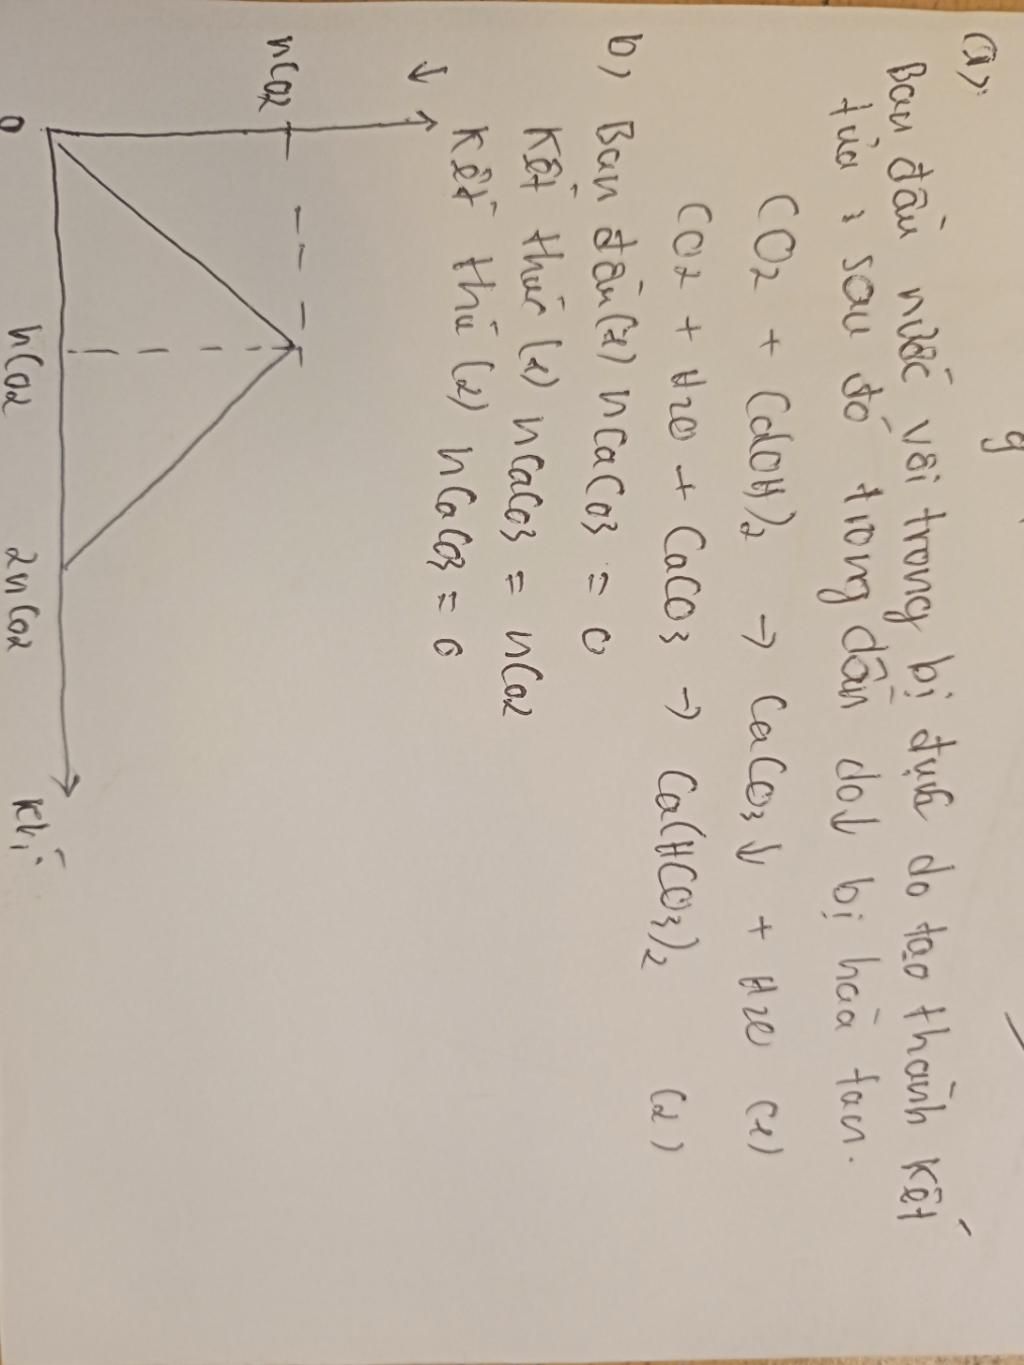 a);
Ban đầu nước vôi trong bị đục do tạo thành kết
tủa; sau đó trong dần do↓ bị hòa tan.
CO2 + Ca(OH)2 → CaCO3↓ + H2O (1)
CO2 + H2O + CaCO3 → Ca(HCO3)2 (2)
b, Ban đầu (1) nCaCO3 = 0
Kết thúc (1) nCaCO3 = nCO2
Kết thú (2) nCaCO3 = 0
↓
nCO2
0 nCO2 2nCO2 Khí